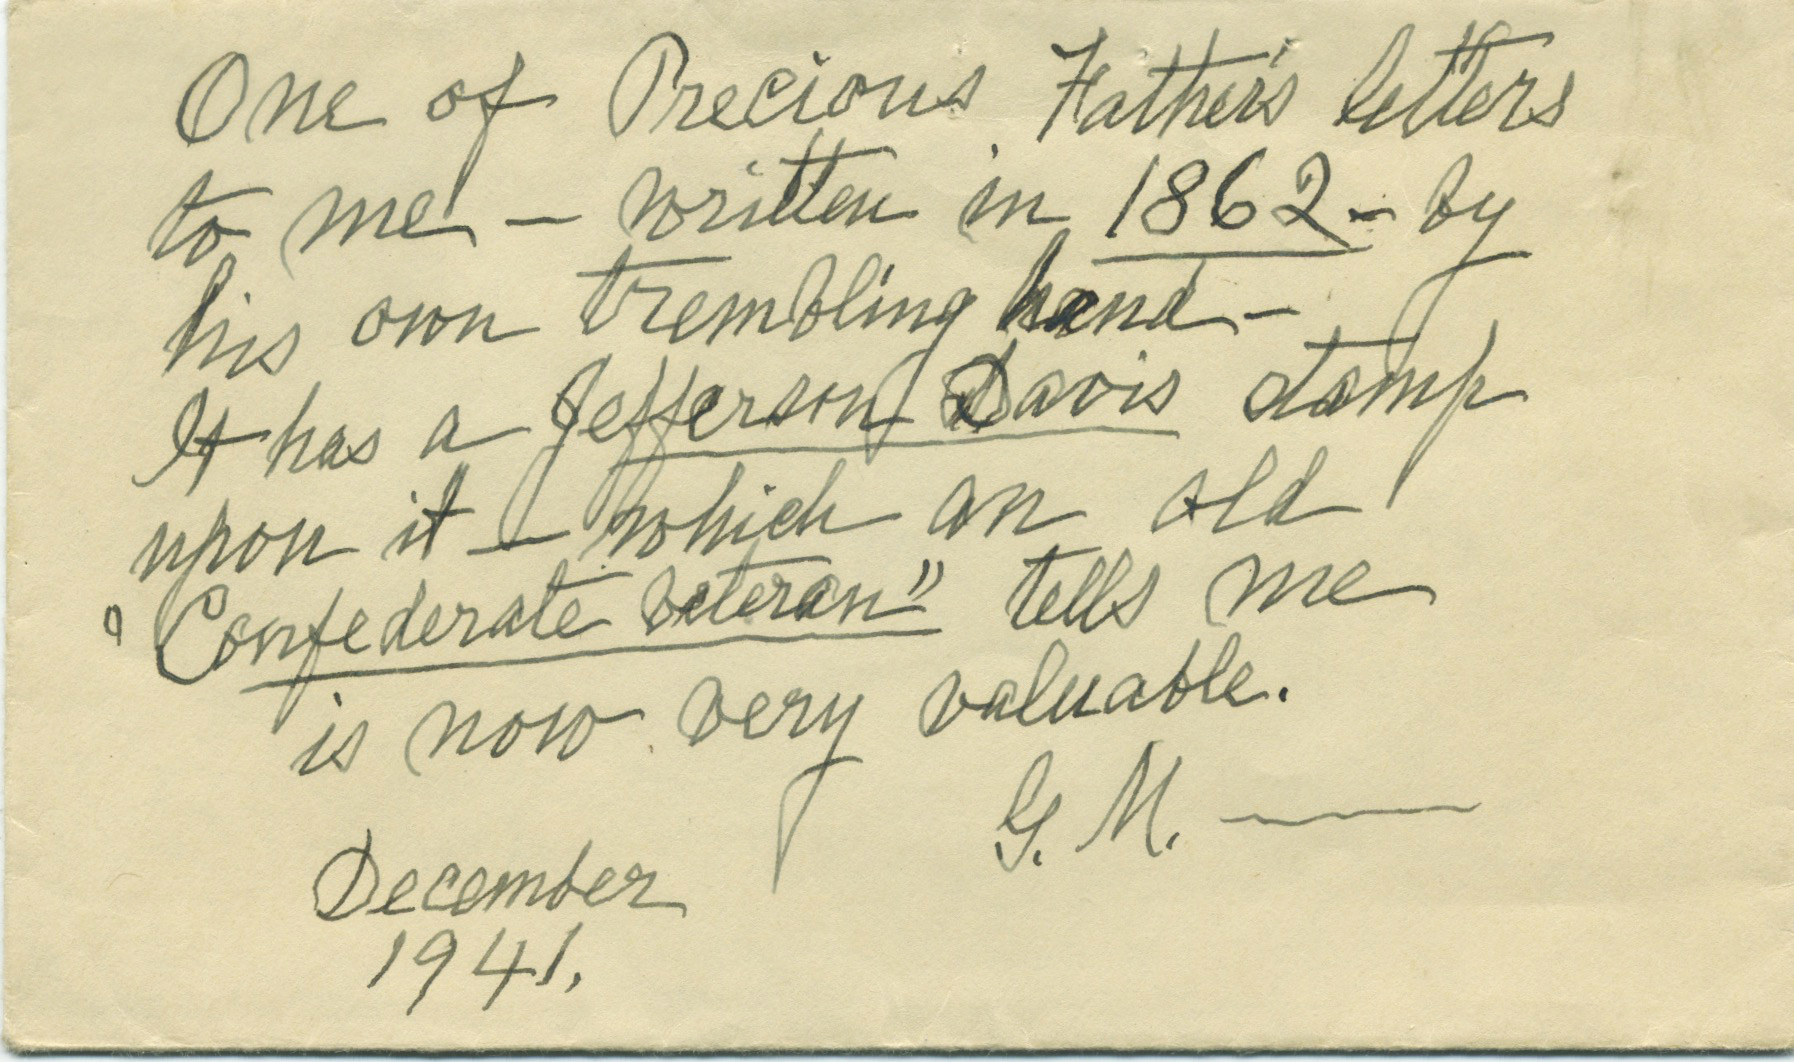 One of Precious Father's letters
to me – written in 1862 – by
his own trembling hand –
It has a Jefferson Davis stamp
upon it – which an old
"Confederate veteran" tells me
is now very valuable.
G. M. ——
December
1941.